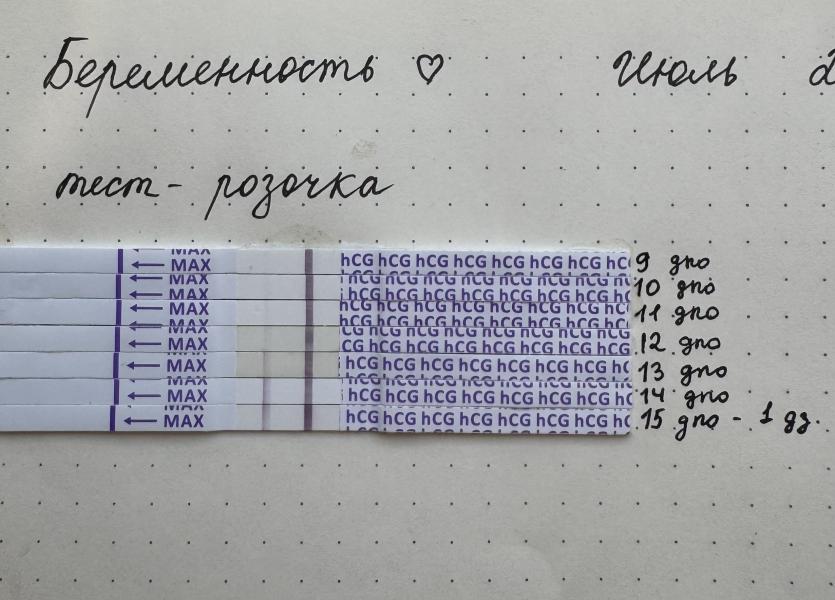 Беременность ♡ Июль
тест - розочка
MAX hCG hCG hCG hCG hCG hCG hCG hC 9 дпо
MAX hCG hCG hCG hCG hCG hCG hCG 10 дпо
MAX hCG hCG hCG hCG hCG hCG hCG 11 дпо
MAX hCG hCG hCG hCG hCG hCG hCG 12 дпо
MAX hCG hCG hCG hCG hCG hCG hCG 13 дпо
MAX hCG hCG hCG hCG hCG hCG hCG 14 дпо
MAX hCG hCG hCG hCG hCG hCG hCG 15 дпо - 1 дз.